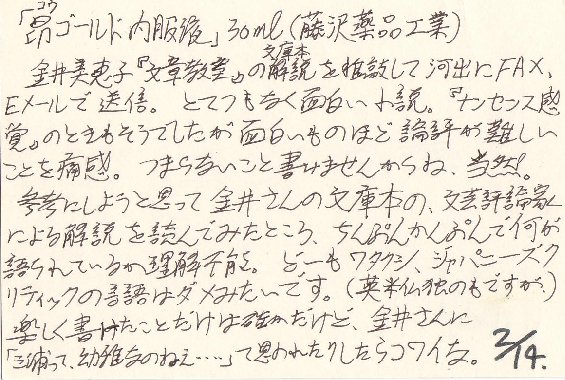 コウ
「昂ゴールド内服液」30ml(藤沢薬品工業)
文庫本
金井美恵子『文章教室』の解説を推敲して河出にFAX、
Eメールで送信。とてつもなく面白い小説。『ナンセンス感
覚』のときもそうでしたが面白いものほど論評が難しい
ことを痛感。つまらないこと書けませんからね、当然。
参考にしようと思って金井さんの文庫本の、文芸評論家
による解説を読んでみたところ、ちんぷんかんぷんで何が
語られているか理解不能。どーもワタクシ、ジャパニーズク
リティックの言語はダメみたいです。(英米仏独のもですが。)
楽しく書けたことだけは確かだけど、金井さんに
「三浦って、幼稚なのねえ‥‥」て思われたりしたらコワイな。
2/14.